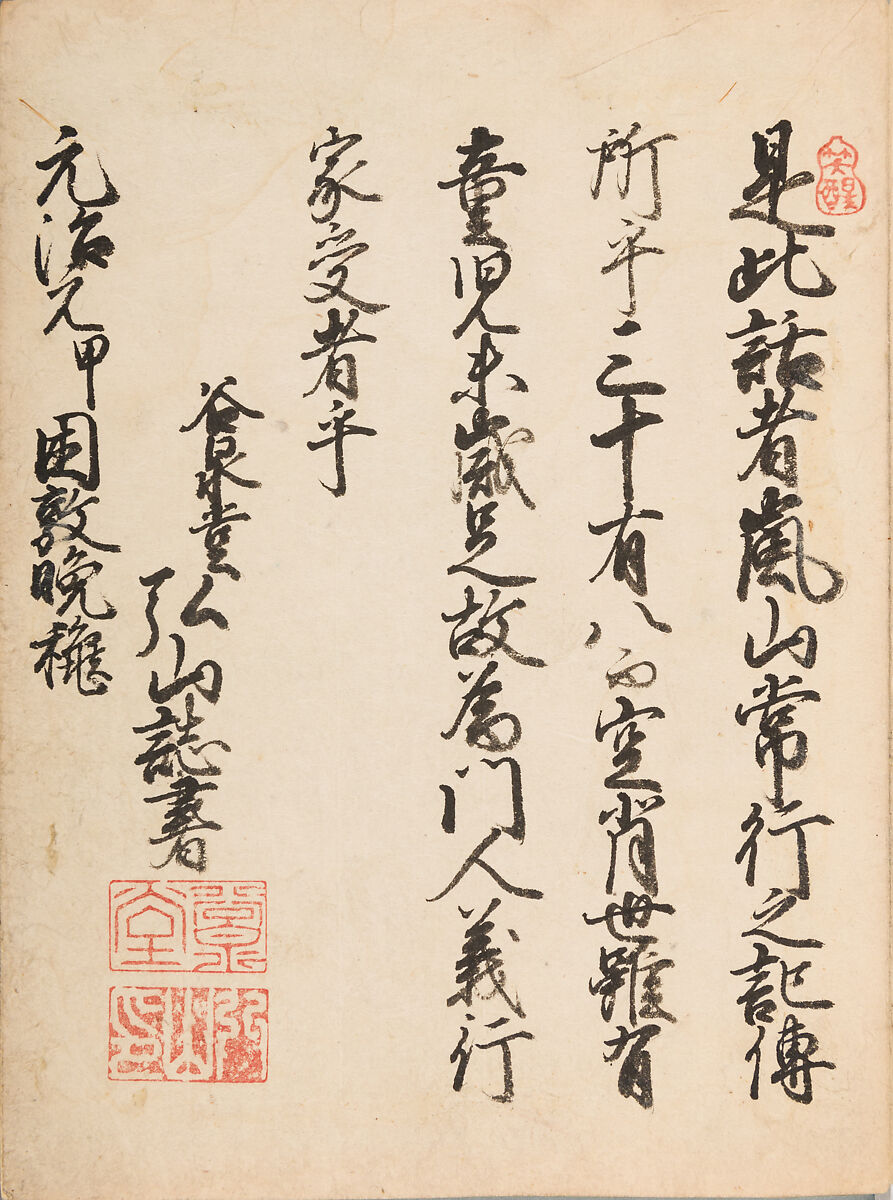 笑醒
是此話者嵐山常行之記傳
所乎三十有八而空肖世雖有
童児未歳足故為門人義行
家受者乎
谷泉堂弘山誌書
元治元甲困敦晩穐